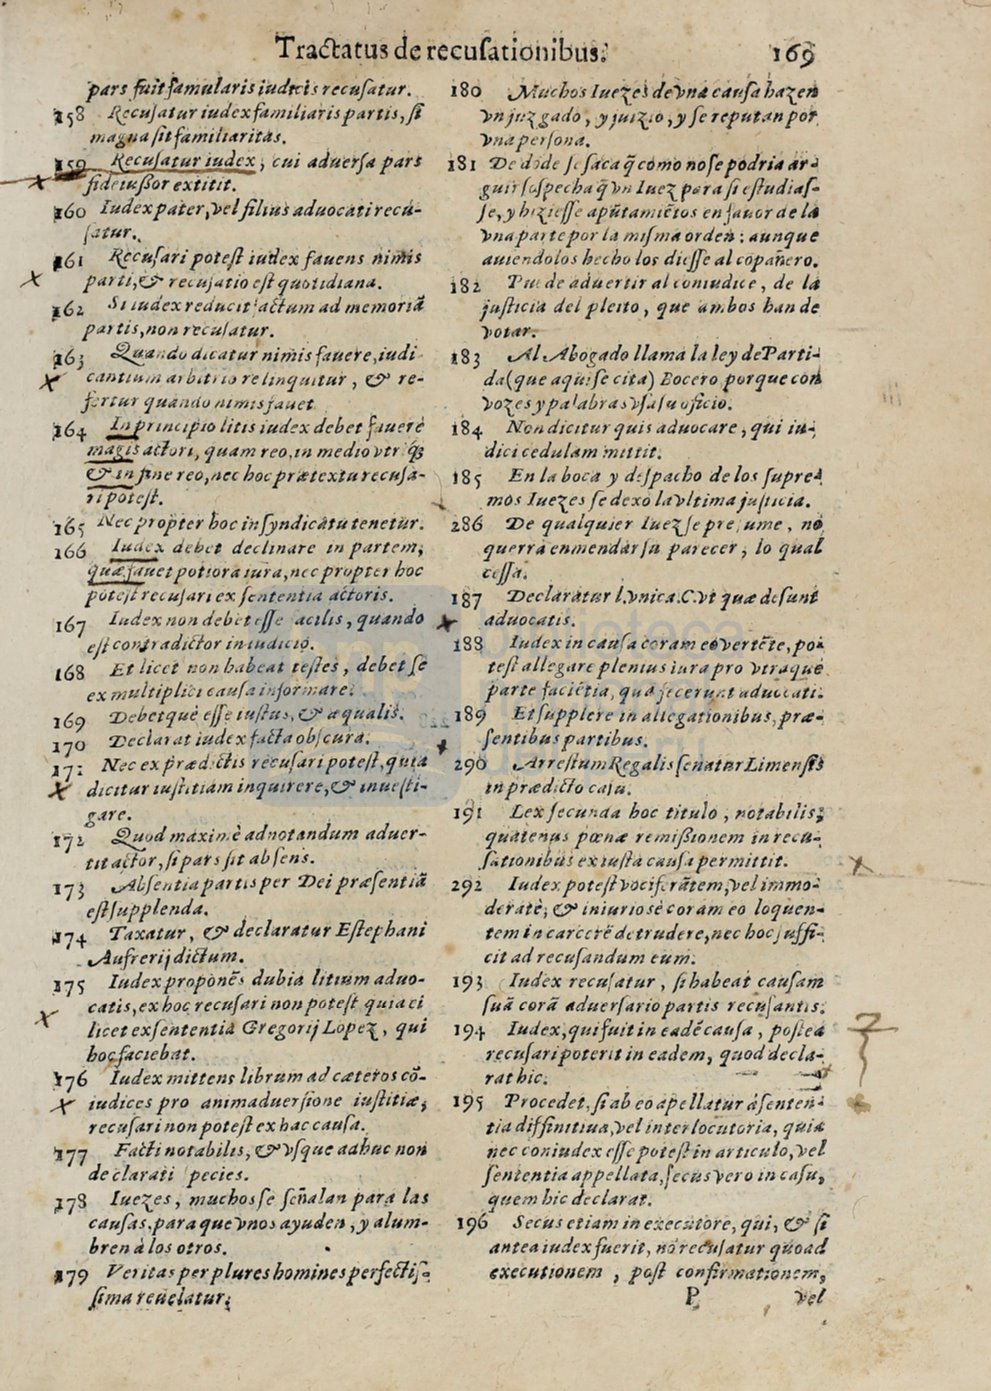 Tractatus de recusationibus. 169
pars fuit famularis iudicis recusatur.
158 Recusatur iudex familiaris partis, si
magna sit familiaritas.
159 Recusatur iudex, cui aduersa pars
fideiussor extitit.
160 Iudex pater, vel filius aduocati recu-
satur.
161 Recusari potest iudex fauens nimis
parti, & recusatio est quotidiana.
162 Si iudex reducit actum ad memoriã
partis, non recusatur.
163 Quando dicatur nimis fauere, iudi
cantium arbitrio relinquitur, & re-
fertur quando nimis fauet
164 In principio litis iudex debet fauere
magis actori, quam reo, in medio vtriq3
& in fine reo, nec hoc prætextu recusa-
ri potest.
165 Nec propter hoc in syndicatu tenetur.
166 Iudex debet declinare in partem,
quæ fauet potiora iura, nec propter hoc
potest recusari ex sententia actoris.
167 Iudex non debet esse facilis, quando
est contradictor in iudicio.
168 Et licet non habeat testes, debet se
ex multiplici causa informare.
169 Debetque esse iustus, & æqualis.
170 Declarat iudex facta obscura.
171 Nec ex prædictis recusari potest, quia
dicitur iustitiam inquirere, & inuesti-
gare.
172 Quod maximè adnotandum aduer-
tit actor, si pars sit absens.
173 Absentia partis per Dei præsentiã
est supplenda.
174 Taxatur, & declaratur Estephani
Aufrerij dictum.
175 Iudex proponẽs dubia litium aduo-
catis, ex hoc recusari non potest quia ei
licet ex sententia Gregorij Lopez, qui
hoc faciebat.
176 Iudex mittens librum ad cæteros cõ-
iudices pro animaduersione iustitiæ,
recusari non potest ex hac causa.
177 Facti notabilis, & vsque adhuc non
declarati species.
178 Iuezes, muchos se señalan para las
causas, para que vnos ayuden, y alum-
bren a los otros.
179 Veritas per plures homines perfectis-
sima reuelatur.
180 Muchos Iuezes de vna causa hazen
vn juzgado, y juizio, y se reputan por
vna persona.
181 De dõde se saca q̃ como no se podria ar-
guir sospecha q̃ vn Iuez para si estudias-
se, y hiziesse apũtamiẽtos en fauor de la
vna parte por la misma orden: aunque
auiendolos hecho los diesse al cõpañero.
182 Puede aduertir al coniudice, de la
justicia del pleito, que ambos han de
votar.
183 Al Abogado llama la ley de Parti-
da (que aqui se cita) Bocero porque con
vozes y palabras vsa su oficio.
184 Non dicitur quis aduocare, qui iu-
dici cedulam mittit.
185 En la boca y despacho de los supre-
mos Iuezes se dexò la vltima justicia.
286 De qualquier Iuez se presume, no
querra enmendar su parecer, lo qual
cessa.
187 Declaratur l. vnica. C. vt quæ desunt
aduocatis.
188 Iudex in causa coram eo vertẽte, po-
test allegare plenius iura pro vtraque
parte faciẽtia, quã fecerunt aduocati.
189 Et supplere in allegationibus, præ-
sentibus partibus.
290 Arrestum Regalis senatus Limensis
in prædicto casu.
191 Lex secunda hoc titulo, notabilis,
quatenus pœnæ remissionem in recu-
sationibus ex iusta causa permittit.
292 Iudex potest vociferãtem, vel immo-
deratè, & iniuriosè coram eo loquen-
tem in carcerẽ detrudere, nec hoc suffi-
cit ad recusandum eum.
193 Iudex recusatur, si habeat causam
suã corã aduersario partis recusantis.
194 Iudex, qui fuit in eadẽ causa, postea
recusari poterit in eadem, quod decla-
rat hic.
195 Procedet, si ab eo apellatur à senten-
tia diffinitiua, vel interlocutoria, quia
nec coniudex esse potest in articulo, vel
sententia appellata, secus vero in casu,
quem hic declarat.
196 Secus etiam in executore, qui, & si
antea iudex fuerit, nõ recusatur quoad
executionem, post confirmationem,
P vel